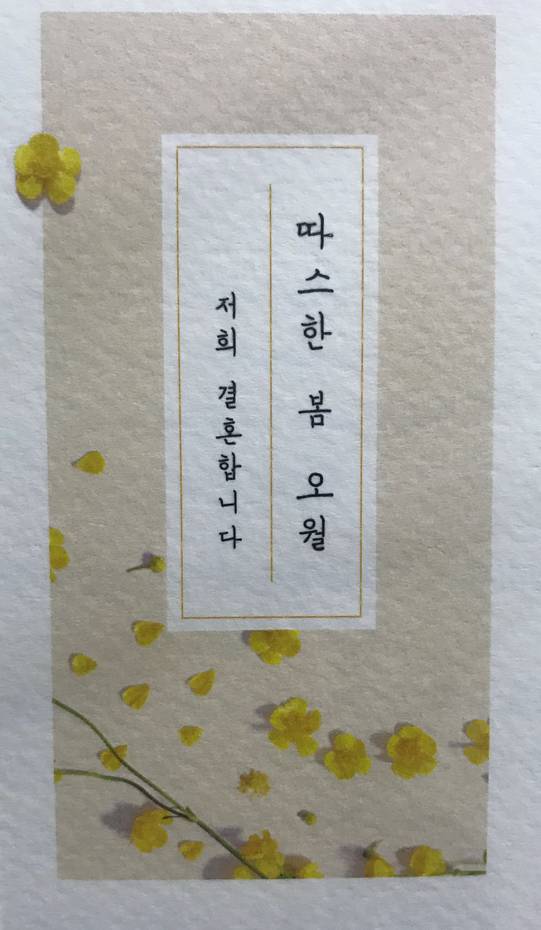 따스한 봄 오월
저희 결혼합니다